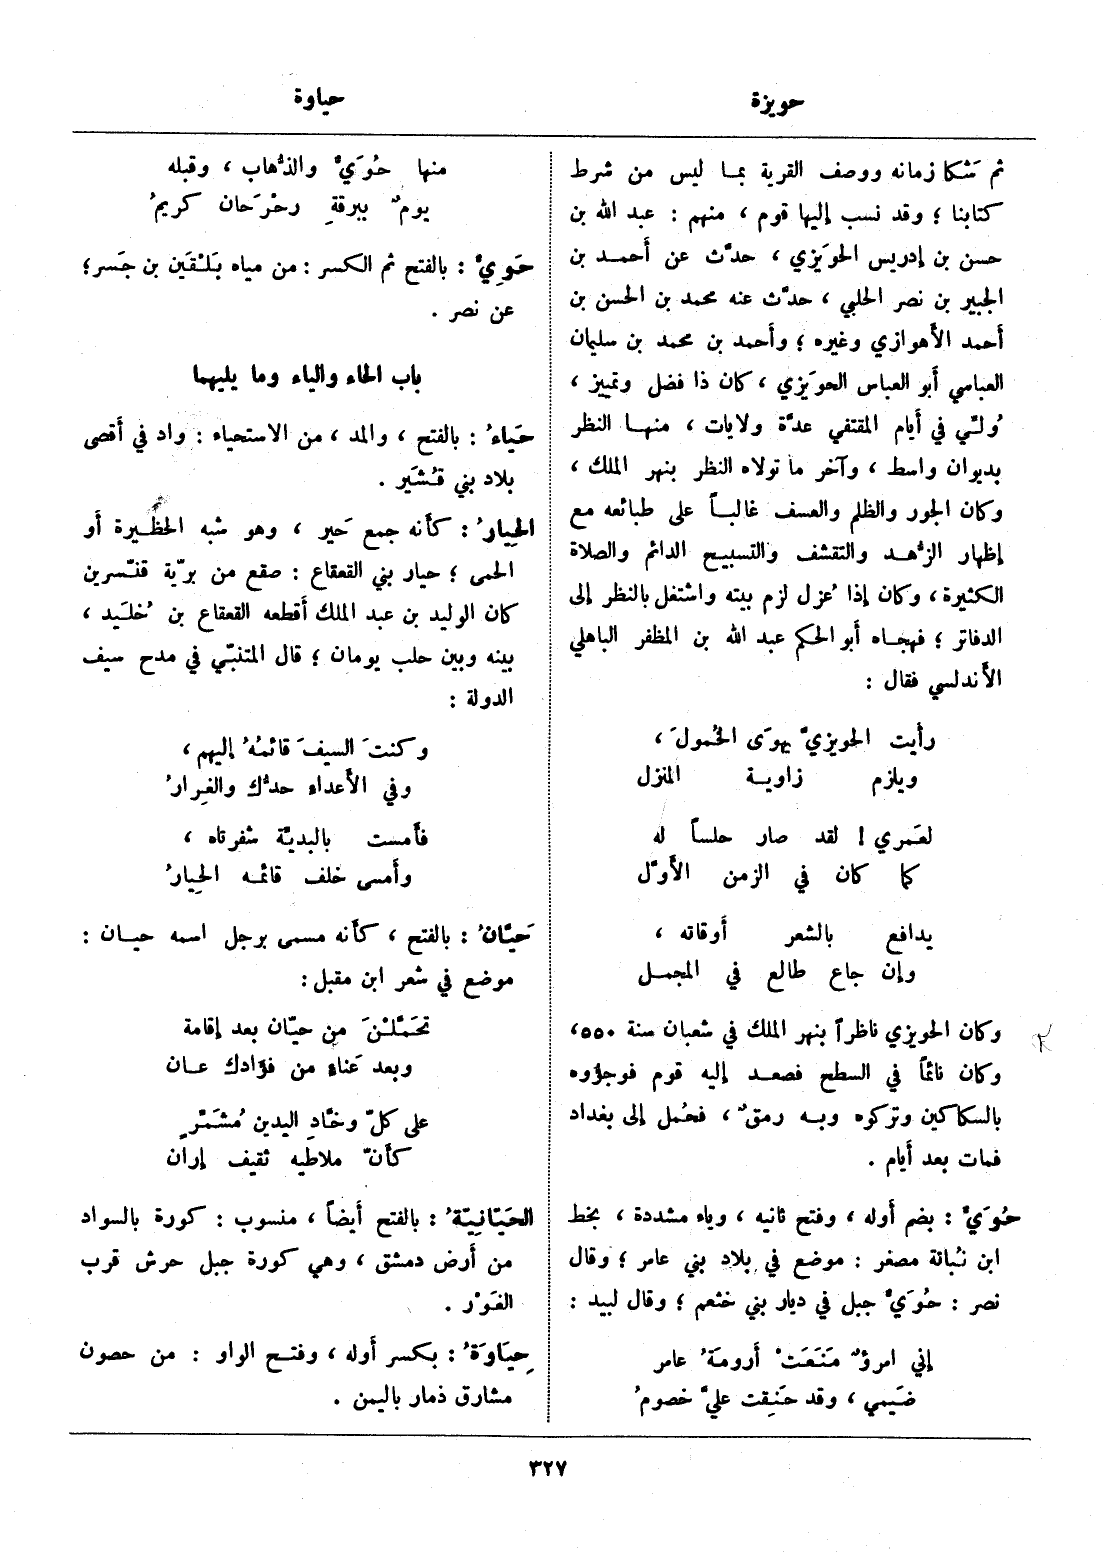 حويزة
حياوة
ثم شكا زمانه ووصف القرية بما ليس من شرط
كتابنا ؛ وقد نسب إليها قوم ، منهم : عبد الله بن
حسن بن إدريس الحويزي ، حدّث عن أحمد بن
الجبير بن نصر الحلبي ، حدّث عنه محمد بن الحسن بن
أحمد الأهوازي وغيره ؛ وأحمد بن محمد بن سليمان
العباسي أبو العباس الحويزي ، كان ذا فضل وتمييز ،
وُلّي في أيام المقتفي عدّة ولايات ، منها النظر
بديوان واسط ، وآخر ما تولاه النظر بنهر الملك ،
وكان الجور والظلم والعسف غالباً على طبائعه مع
إظهار الزّهد والتقشف والتسبيح الدائم والصلاة
الكثيرة ، وكان إذا عُزل لزم بيته واشتغل بالنظر إلى
الدفاتر ؛ فهجاه أبو الحكم عبد الله بن المظفر الباهلي
الأندلسي فقال :
رأيت الحويزيّ يهوَى الخُمولَ ،
ويلزم زاوية المنزل
لعَمري ! لقد صار حلساً له
كما كان في الزمن الأوّل
يدافع بالشعر أوقاته ،
وإن جاع طالع في المجمل
وكان الحويزي ناظراً بنهر الملك في شعبان سنة ٥٥٠،
وكان نائماً في السطح فصعد إليه قوم فوجؤوه
بالسكاكين وتركوه وبه رمقٌ ، فحُمل إلى بغداد
فمات بعد أيام .
حُوَيّ : بضم أوله ، وفتح ثانيه ، وياء مشددة ، بخط
ابن نُباتة مصغر : موضع في بلاد بني عامر ؛ وقال
نصر : حُوَيّ جبل في ديار بني خثعم ؛ وقال لبيد :
إني امرؤٌ مَنَعَتْ أرومةُ عامر
ضَيمي ، وقد حَنِقت عليّ خصومُ
منها حُوَيّ والذُّهاب ، وقبله
يومٌ ببرقةِ رحْرَحان كريمُ
حَوِيّ : بالفتح ثم الكسر : من مياه بَلْقَين بن جَسر ؛
عن نصر .
باب الحاء والياء وما يليهما
حَياءُ : بالفتح ، والمد ، من الاستحياء : واد في أقصى
بلاد بني قُشَير .
الحِيارُ : كأنه جمع حَير ، وهو شبه الحظيرة أو
الحمى ؛ حيار بني القعقاع : صقع من برّية قنّسرين
كان الوليد بن عبد الملك أقطعه القعقاع بن خُلَيد ،
بينه وبين حلب يومان ؛ قال المتنبّي في مدح سيف
الدولة :
وكنتَ السيفَ قائمُهُ إليهم ،
وفي الأعداء حدُّك والغِرارُ
فأمست بالبديّة شفرتاه ،
وأمسى خلف قائمه الحِيارُ
حَيّانُ : بالفتح ، كأنه مسمى برجل اسمه حيان :
موضع في شعر ابن مقبل :
تحَمَّلْنَ من حيّان بعد إقامة
وبعد عَناءٍ من فؤادك عان
على كلّ وخّادِ اليدين مُشَمِّرٍ
كأنّ ملاطيه ثقيف إران
الحَيّانِيّةُ : بالفتح أيضاً ، منسوب : كورة بالسواد
من أرض دمشق ، وهي كورة جبل حرش قرب
الغَوْر .
حِياوَةُ : بكسر أوله ، وفتح الواو : من حصون
مشارق ذمار باليمن .
٣٢٧